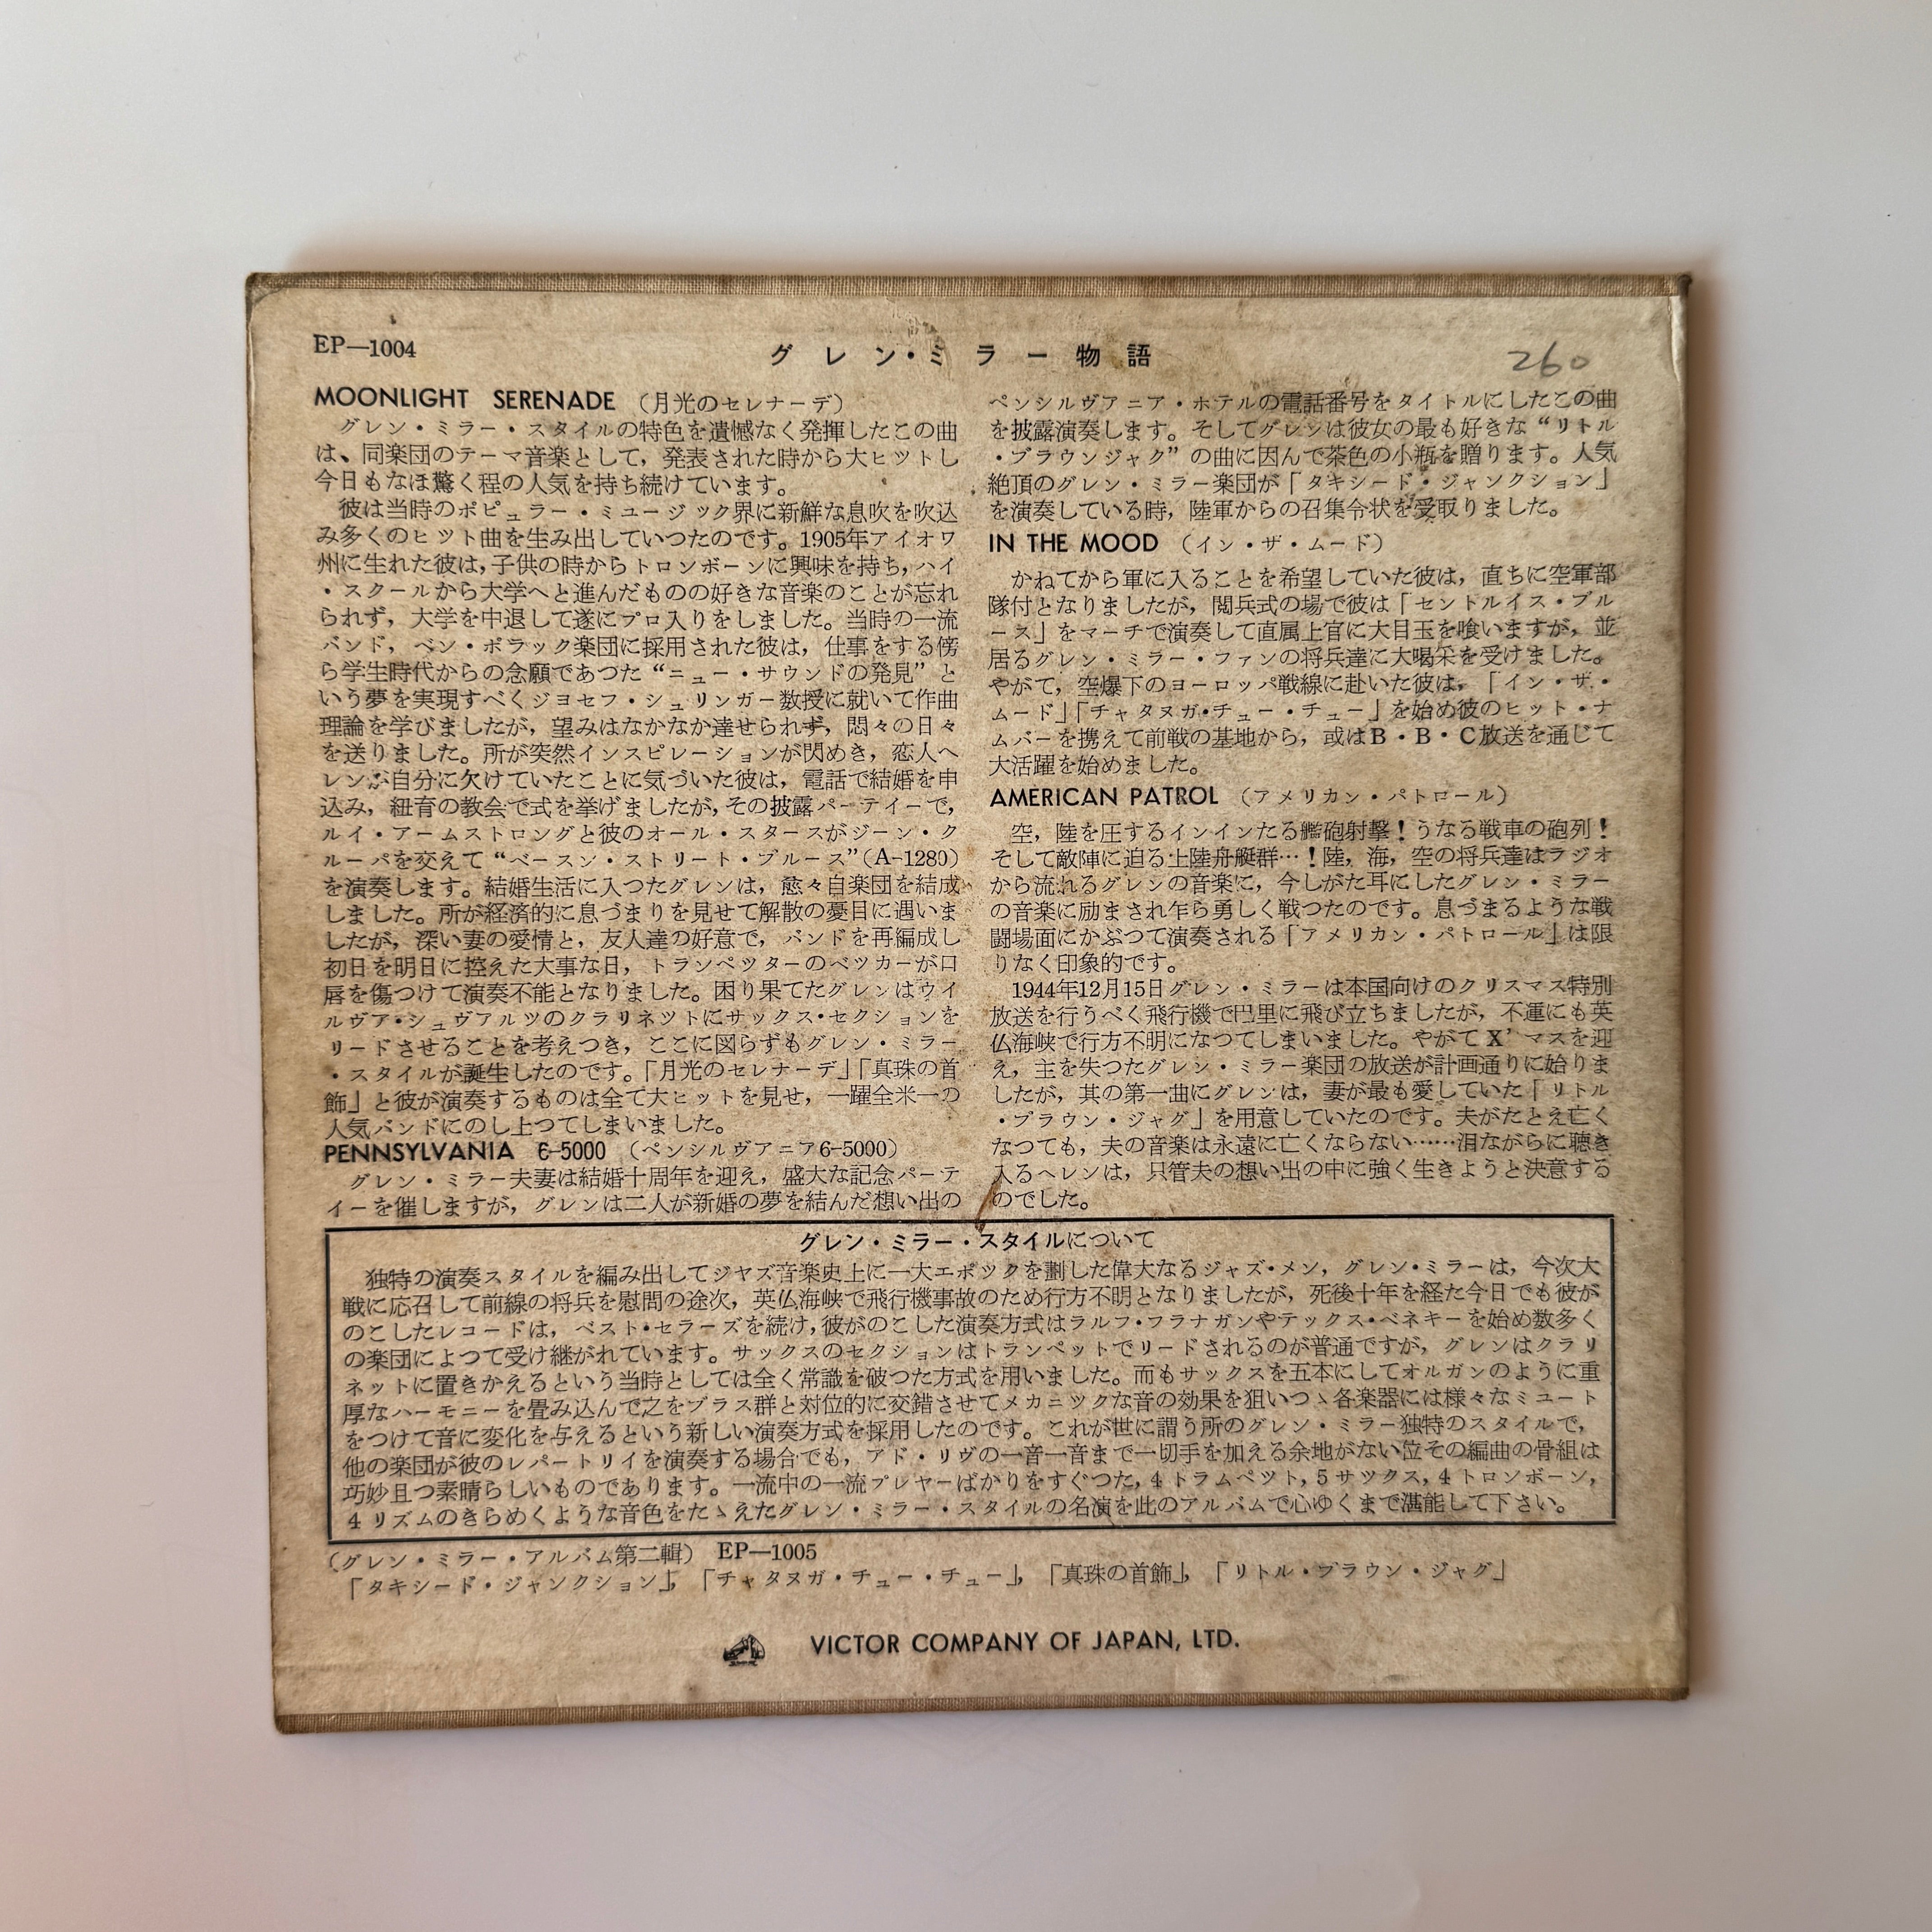 EP—1004
グレン・ミラー物語
260
MOONLIGHT SERENADE (月光のセレナーデ)
グレン・ミラー・スタイルの特色を遺憾なく発揮したこの曲
は、同楽団のテーマ音楽として，発表された時から大ヒツトし
今日もなほ驚く程の人気を持ち続けています。
彼は当時のポピュラー・ミユージック界に新鮮な息吹を吹込
み多くのヒツト曲を生み出していつたのです。1905年アイオワ
州に生れた彼は，子供の時からトロンボーンに興味を持ち，ハイ
・スクールから大学へと進んだものの好きな音楽のことが忘れ
られず，大学を中退して遂にプロ入りをしました。当時の一流
バンド，ベン・ポラック楽団に採用された彼は，仕事をする傍
ら学生時代からの念願であつた“ニュー・サウンドの発見”と
いう夢を実現すべくジヨセフ・シュリンガー教授に就いて作曲
理論を学びましたが，望みはなかなか達せられず，悶々の日々
を送りました。所が突然インスピレーションが閃めき，恋人ヘ
レンが自分に欠けていたことに気づいた彼は，電話で結婚を申
込み，紐育の教会で式を挙げましたが，その披露パーテイーで，
ルイ・アームストロングと彼のオール・スタースがジーン・ク
ルーパを交えて“ベースン・ストリート・ブルース”(A-1280)
を演奏します。結婚生活に入つたグレンは，愈々自楽団を結成
しました。所が経済的に息づまりを見せて解散の憂目に遇いま
したが，深い妻の愛情と，友人達の好意で，バンドを再編成し
初日を明日に控えた大事な日，トランペツターのベツカーが口
唇を傷つけて演奏不能となりました。困り果てたグレンはウイ
ルヴア・シュヴアルツのクラリネツトにサックス・セクションを
リードさせることを考えつき，ここに図らずもグレン・ミラー
・スタイルが誕生したのです。「月光のセレナーデ」「真珠の首
飾」と彼が演奏するものは全て大ヒットを見せ，一躍全米一の
人気バンドにのし上つてしまいました。
PENNSYLVANIA 6-5000 (ペンシルヴアニア6-5000)
グレン・ミラー夫妻は結婚十周年を迎え，盛大な記念パーテ
イーを催しますが，グレンは二人が新婚の夢を結んだ想い出の
ペンシルヴアニア・ホテルの電話番号をタイトルにしたこの曲
を披露演奏します。そしてグレンは彼女の最も好きな“リトル
・ブラウンジャク”の曲に因んで茶色の小瓶を贈ります。人気
絶頂のグレン・ミラー楽団が「タキシード・ジャンクション」
を演奏している時，陸軍からの召集令状を受取りました。
IN THE MOOD (イン・ザ・ムード)
かねてから軍に入ることを希望していた彼は，直ちに空軍部
隊付となりましたが，閲兵式の場で彼は「セントルイス・ブル
ース」をマーチで演奏して直属上官に大目玉を喰いますが，並
居るグレン・ミラー・ファンの将兵達に大喝采を受けました。
やがて，空爆下のヨーロッパ戦線に赴いた彼は，「イン・ザ・
ムード」「チャタヌガ・チュー・チュー」を始め彼のヒット・ナ
ムバーを携えて前戦の基地から，或はB・B・C放送を通じて
大活躍を始めました。
AMERICAN PATROL (アメリカン・パトロール)
空，陸を圧するインインたる艦砲射撃！うなる戦車の砲列！
そして敵陣に迫る上陸舟艇群…！陸，海，空の将兵達はラジオ
から流れるグレンの音楽に，今しがた耳にしたグレン・ミラー
の音楽に励まされ乍ら勇しく戦つたのです。息づまるような戦
闘場面にかぶつて演奏される「アメリカン・パトロール」は限
りなく印象的です。
1944年12月15日グレン・ミラーは本国向けのクリスマス特別
放送を行うべく飛行機で巴里に飛び立ちましたが，不運にも英
仏海峡で行方不明になつてしまいました。やがてX’マスを迎
え，主を失つたグレン・ミラー楽団の放送が計画通りに始りま
したが，其の第一曲にグレンは，妻が最も愛していた「リトル
・ブラウン・ジャグ」を用意していたのです。夫がたとえ亡く
なつても，夫の音楽は永遠に亡くならない……泪ながらに聴き
入るヘレンは，只管夫の想い出の中に強く生きようと決意する
のでした。
グレン・ミラー・スタイルについて
独特の演奏スタイルを編み出してジヤズ音楽史上に一大エポツクを劃した偉大なるジャズ・メン，グレン・ミラーは，今次大
戦に応召して前線の将兵を慰問の途次，英仏海峡で飛行機事故のため行方不明となりましたが，死後十年を経た今日でも彼が
のこしたレコードは，ベスト・セラーズを続け，彼がのこした演奏方式はラルフ・フラナガンやテックス・ベネキーを始め数多く
の楽団によつて受け継がれています。サックスのセクションはトランペットでリードされるのが普通ですが，グレンはクラリ
ネットに置きかえるという当時としては全く常識を破つた方式を用いました。而もサックスを五本にしてオルガンのように重
厚なハーモニーを畳み込んで之をブラス群と対位的に交錯させてメカニツクな音の効果を狙いつゝ各楽器には様々なミユート
をつけて音に変化を与えるという新しい演奏方式を採用したのです。これが世に謂う所のグレン・ミラー独特のスタイルで，
他の楽団が彼のレパートリイを演奏する場合でも，アド・リヴの一音一音まで一切手を加える余地がない位その編曲の骨組は
巧妙且つ素晴らしいものであります。一流中の一流プレヤーばかりをすぐつた，4トラムペツト，5サツクス，4トロンボーン，
4リズムのきらめくような音色をたゝえたグレン・ミラー・スタイルの名演を此のアルバムで心ゆくまで湛能して下さい。
(グレン・ミラー・アルバム第二輯) EP—1005
「タキシード・ジャンクション」，「チャタヌガ・チュー・チュー」，「真珠の首飾」，「リトル・ブラウン・ジャグ」
VICTOR COMPANY OF JAPAN, LTD.